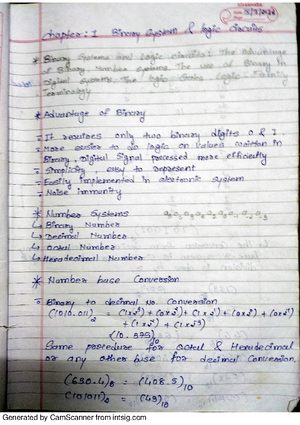 Chapter: 1 Binary System & logic circuits.
* Binary Systems and Logic circuits: The advantage
of Binary Number systems. The use of Binary in
Digital systems. The logic Gates Logic Family
terminology
* Advantage of Binary
- It requires only two binary digits 0 & 1.
- More easier to do logic on values written in
Binary. Digital Signal processed more efficiently
- Simplicity, easy to represent
- Easily implemented in electronic system
- Noise immunity
* Number Systems
↳ Binary Number
↳ Decimal Number
↳ Octal Number
↳ Hexadecimal Number
* Number base Conversion
- Binary to decimal No. Conversion
(1010.011)₂ =
Same procedure for Octal & Hexadecimal
or any other base for decimal Conversion.
(630.4)₈ = (408.5)₁₀
Generated by CamScanner from intsig.com